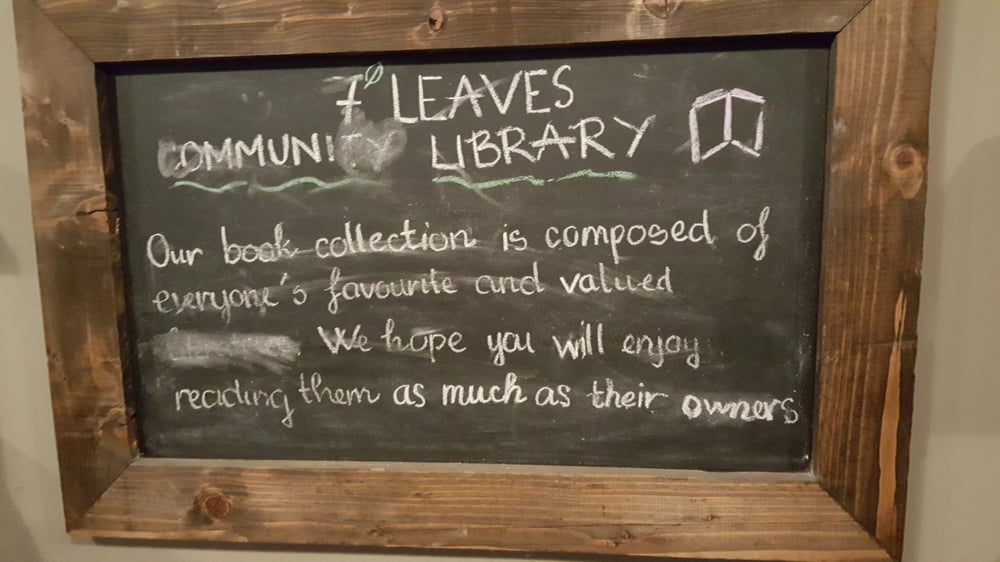 7 LEAVES
COMMUNITY LIBRARY
Our book collection is composed of
everyone's favourite and valued
We hope you will enjoy
reading them as much as their owners